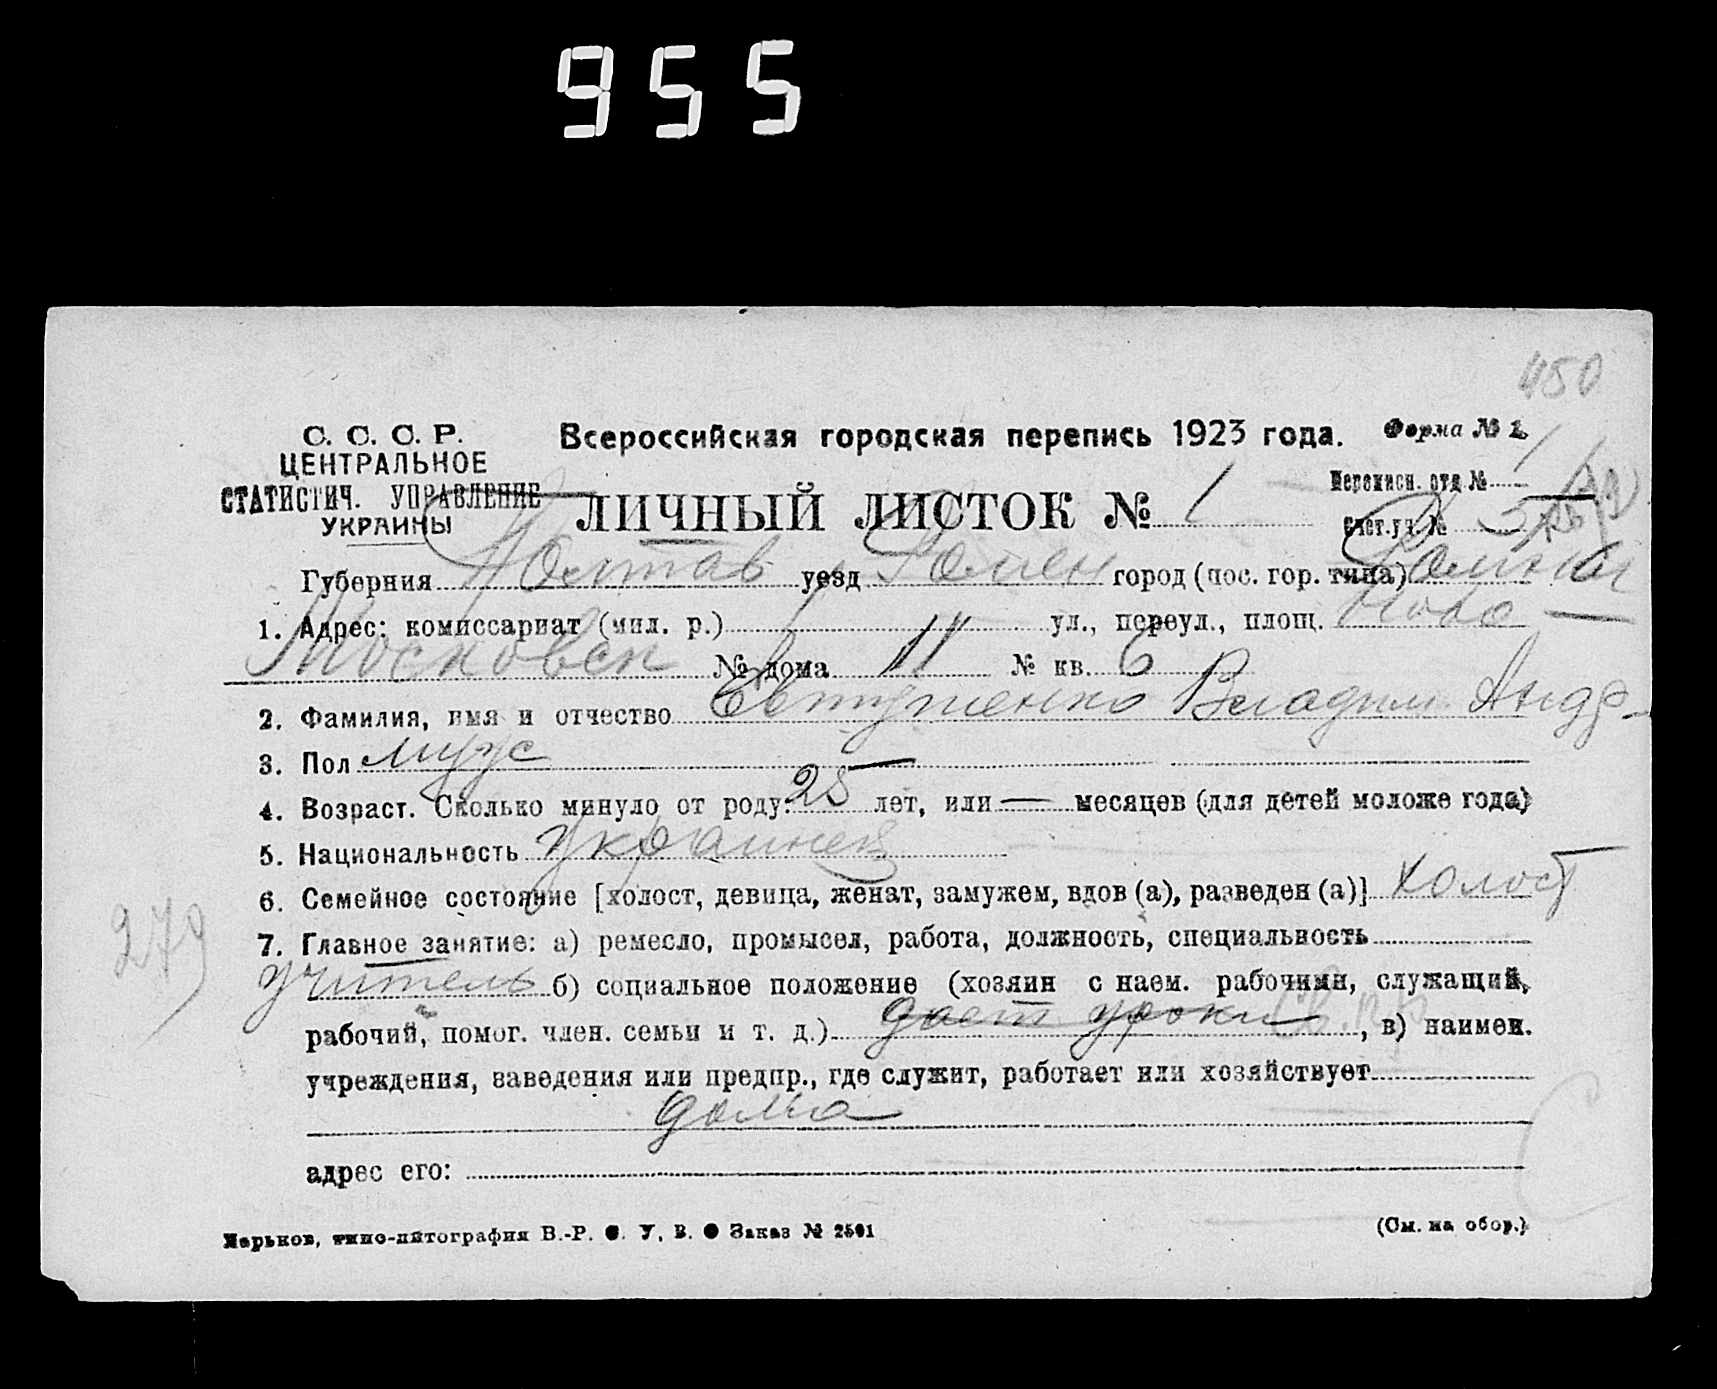 955
450
С. С. С. Р.
ЦЕНТРАЛЬНОЕ
СТАТИСТИЧ. УПРАВЛЕНИЕ
УКРАИНЫ
Всероссийская городская перепись 1923 года. Форма № 1
ЛИЧНЫЙ ЛИСТОК № 1
Переписн. отд. № 1
Счет. уч. № 3
Губерния Полтав уезд Ромен город (пос. гор. типа) Ромны
1. Адрес: комиссариат (мил. р.) 1 ул., переул., площ. Ново —
Московск № дома 11 № кв. 6
2. Фамилия, имя и отчество Евтушенко Владим. Андр.
3. Пол муж
4. Возраст. Сколько минуло от роду: 25 лет, или — месяцев (для детей моложе года)
5. Национальность Украинец
6. Семейное состояние [холост, девица, женат, замужем, вдов (а), разведен (а)] холост
279
7. Главное занятие: а) ремесло, промысел, работа, должность, специальность
учитель б) социальное положение (хозяин с наем. рабочими, служащий,
рабочий, помог. член. семьи и т. д.) дает уроки, в) наимен.
учреждения, заведения или предпр., где служит, работает или хозяйствует
дома
адрес его:
Харьков, типо-литография В.-Р. С. У. В. О Заказ № 2501
(См. на обор.)